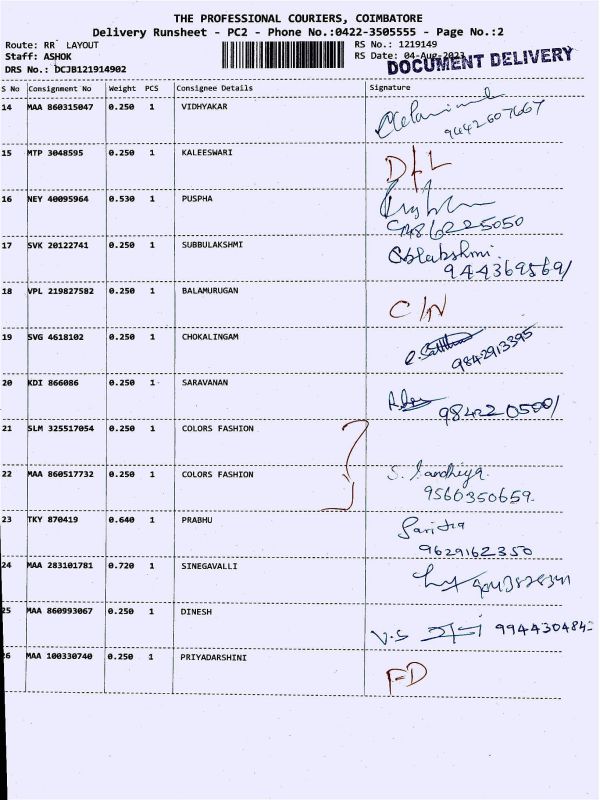 THE PROFESSIONAL COURIERS, COIMBATORE
Delivery Runsheet - PC2 - Phone No.:0422-3505555 - Page No.:2
Route: RR LAYOUT RS No.: 1219149
Staff: ASHOK RS Date: 04-Aug-2023
DRS No.: DCJB121914902 DOCUMENT DELIVERY
S No Consignment No Weight PCS Consignee Details Signature
14 MAA 860315047 0.250 1 VIDHYAKAR
9442607667
15 MTP 3048595 0.250 1 KALEESWARI D/L
16 NEY 40095964 0.530 1 PUSPHA
9486225050
17 SVK 20122741 0.250 1 SUBBULAKSHMI Sblakshmi.
944369569/
18 VPL 219827582 0.250 1 BALAMURUGAN C/N
19 SVG 4618102 0.250 1 CHOKALINGAM
9842913395
20 KDI 866086 0.250 1 SARAVANAN
21 SLM 325517054 0.250 1 COLORS FASHION
22 MAA 860517732 0.250 1 COLORS FASHION S. Sandhiya
9560350659.
23 TKY 870419 0.640 1 PRABHU
9629162350
24 MAA 283101781 0.720 1 SINEGAVALLI
25 MAA 860993067 0.250 1 DINESH V.S 994430484
26 MAA 100330740 0.250 1 PRIYADARSHINI FD